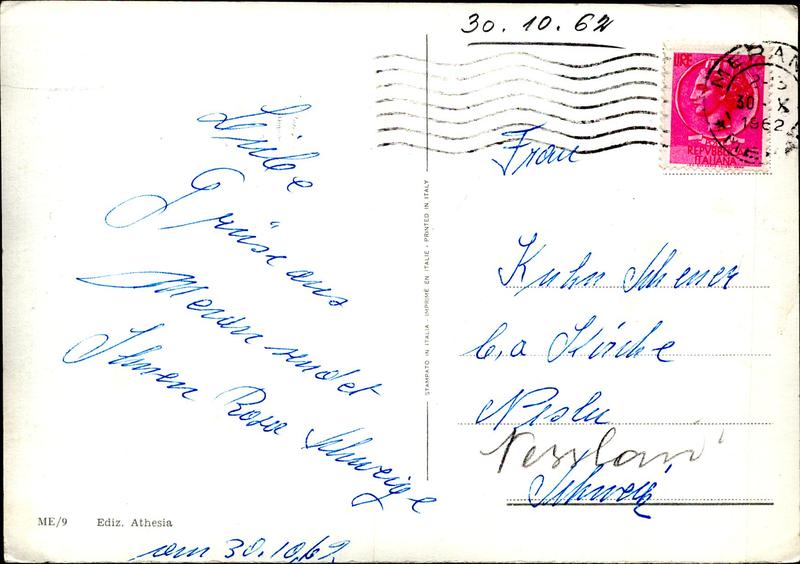 30.10.62
LIRE
MERAN
30 X
1962
REPVBBLICA
ITALIANA
Liebe
Grüse aus
Meran sendet
Ihnen Rosa Schweige
am 30.10.62
Frau
Kuhn Scherer
b,a Kirche
Neslu
Nesslau
Schweiz
STAMPATO IN ITALIA - IMPRIMÉ EN ITALIE - PRINTED IN ITALY
ME/9 Ediz. Athesia